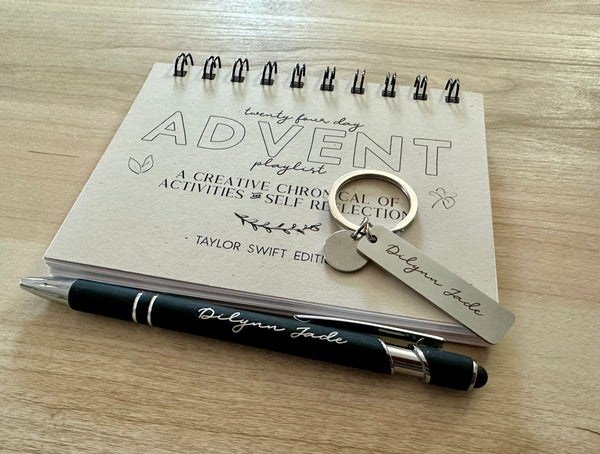 twenty four day
ADVENT
playlist
A CREATIVE CHRON CAL OF
ACTIVITIES & SELF RE LECTION
TAYLOR SWIFT EDITI
Dilynn Jade
Dilynn Jade